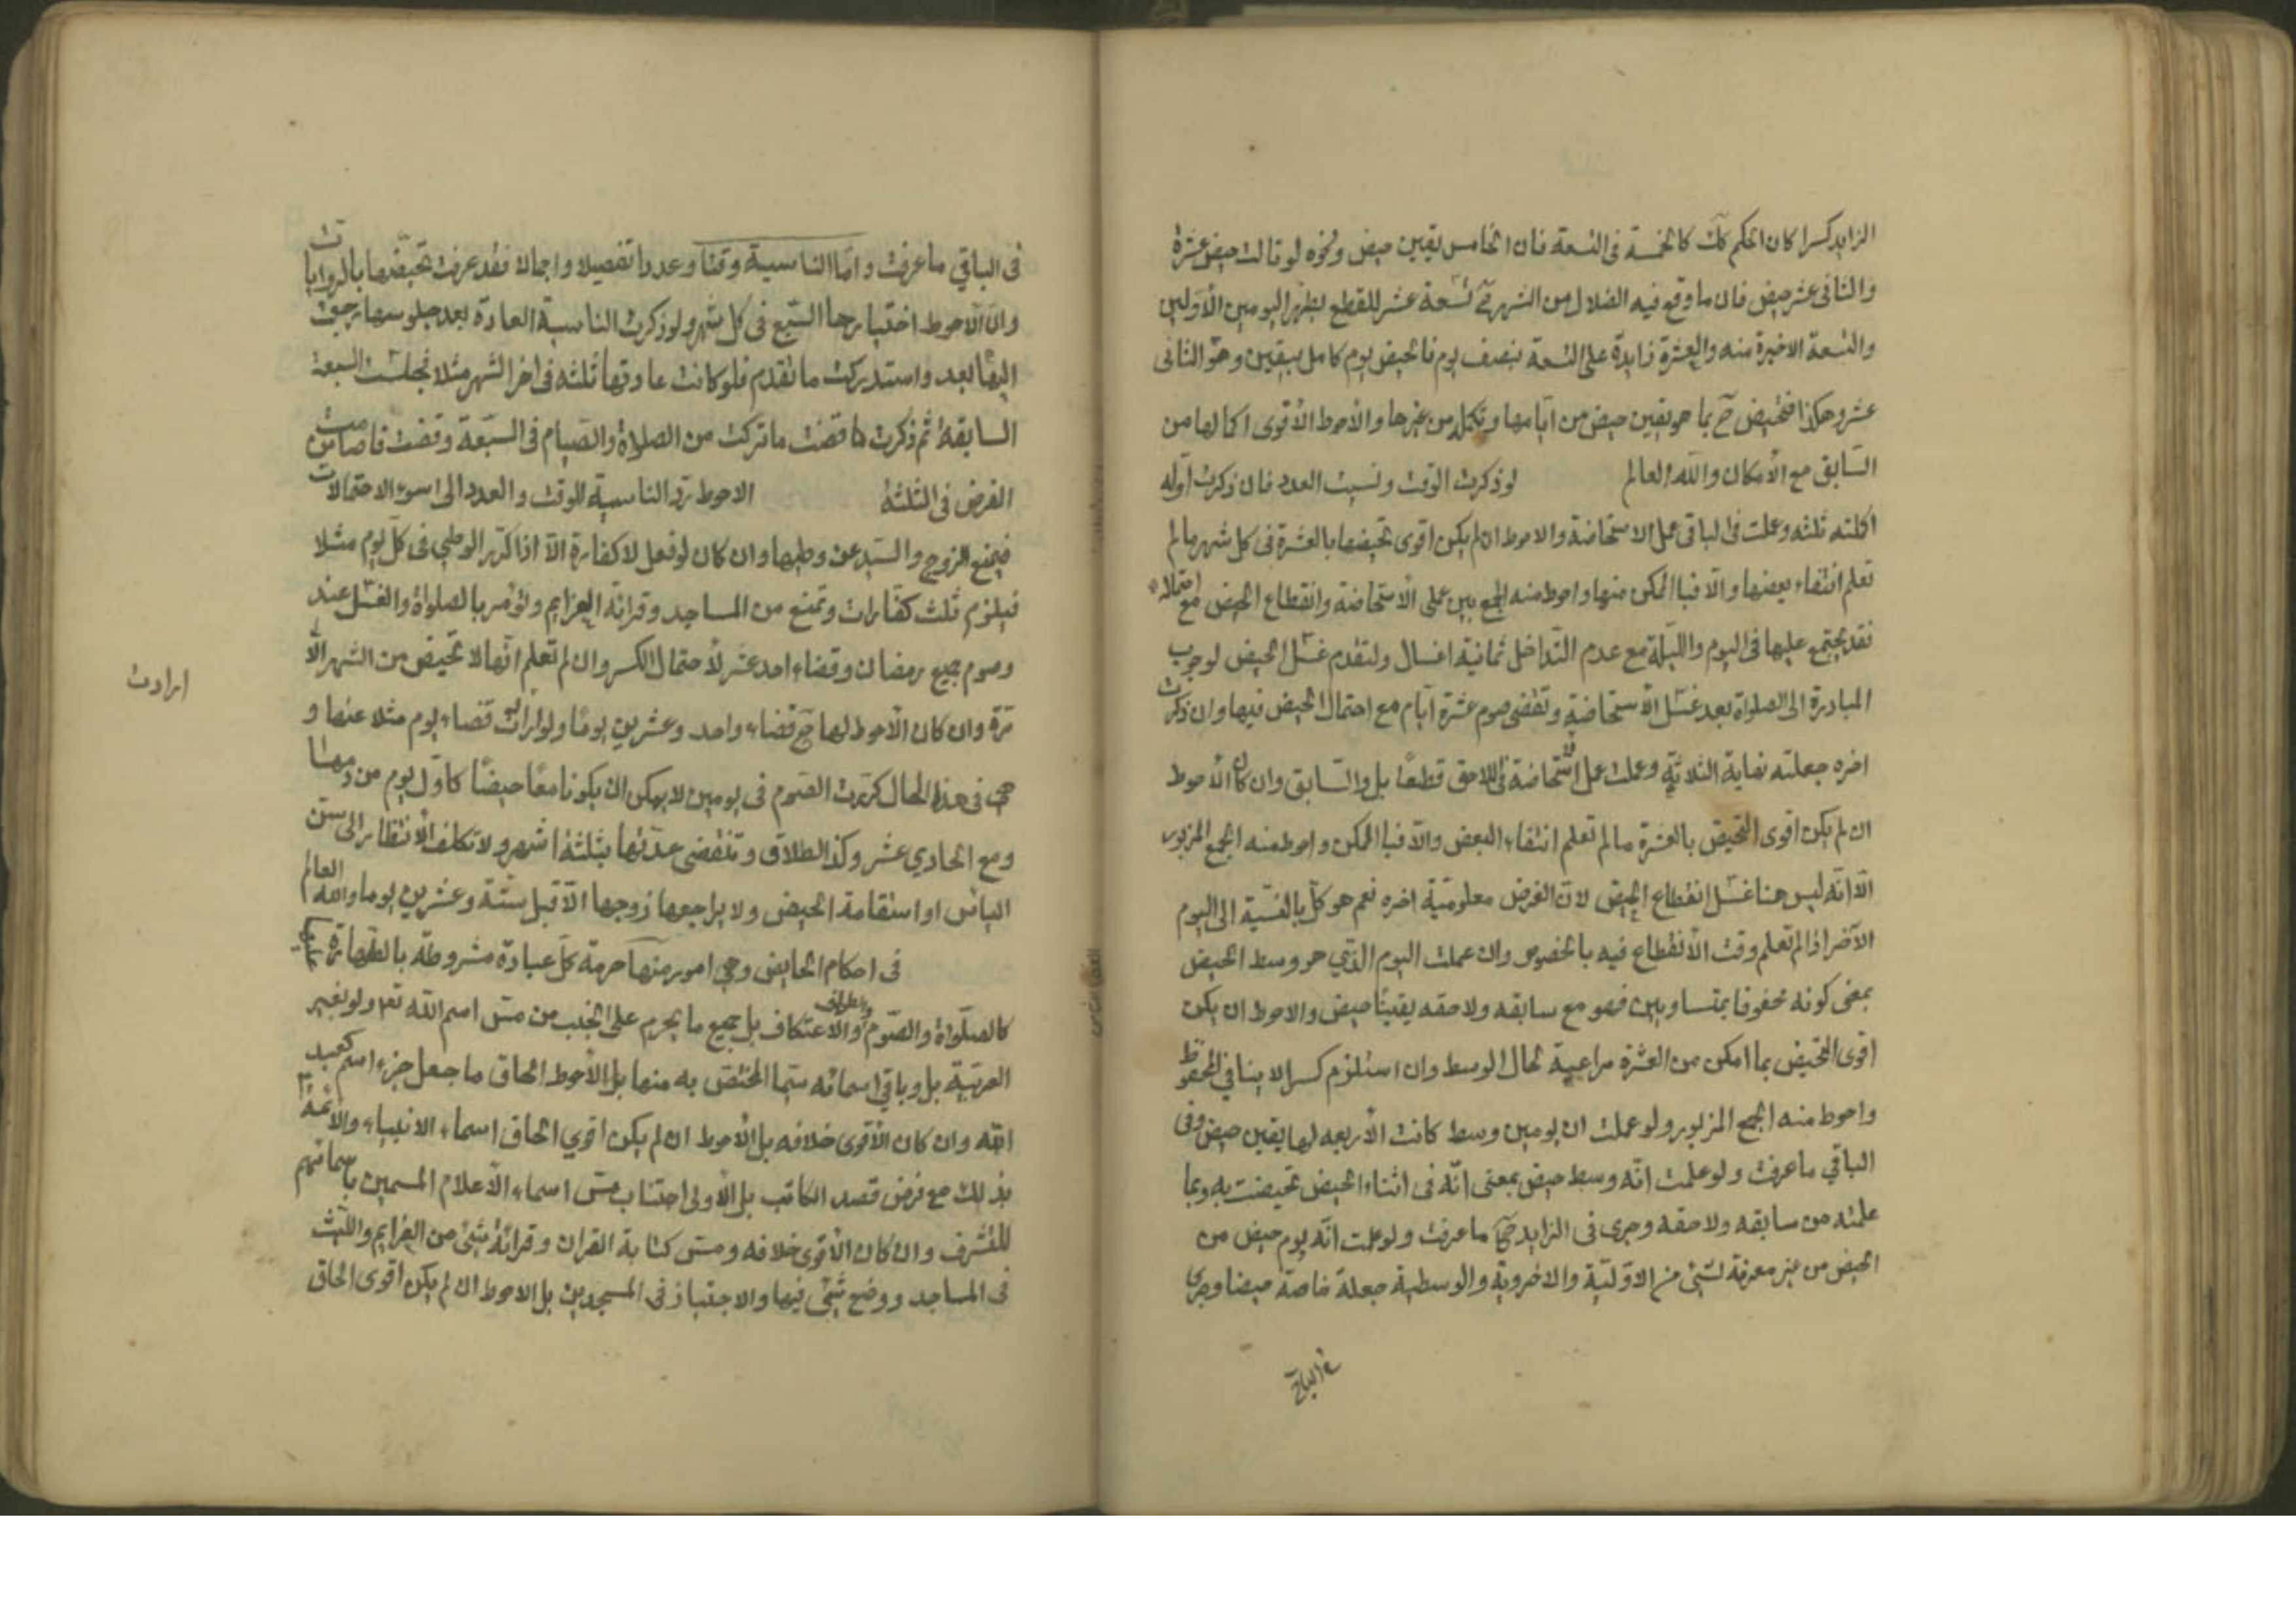 الزايد كسرا كان الحكم كك كالخمسة فى التسعة فان الخامس يقين حيض ونحوه لو قالت حيضى عشرة
والثانى عشر حيض فان ما وقع فيه الضلال من الشهر تسعة عشر للقطع بطهر اليومين الأولين
والتسعة الاخيرة منه والعشرة زايدة على التسعة بنصف يوم فالحيض يوم كامل بيقين وهو الثانى
عشر وهكذا فتحيض ح بما هو يقين حيض من ايامها وتكمله من غيرها والأحوط الأقوى اكمالها من
السابق مع الأمكان والله العالم لو ذكرت الوقت ونسيت العدد فان ذكرت أوله
اكملته ثلثه وعملت فى الباقى عمل الاستحاضة والاحوط ان لم يكن اقوى تحيضها بالعشرة فى كل شهر ما لم
تعلم انتفاء بعضها والا فبالممكن منها واحوط منه الجمع بين عملى الأستحاضة وانقطاع الحيض مع احتماله
فقد يجتمع عليها فى اليوم والليلة مع عدم التداخل ثمانية اغسال ولتقدم غسل الحيض لوجوب
المبادرة الى الصلواة بعد غسل الأستحاضة وتقضى صوم عشرة أيام مع احتمال الحيض فيها وان ذكرت
اخره جعلته نهاية الثلاثة وعملت عمل استحاضة فى اللاحق قطعًا بل والسابق وان كان الأحوط
ان لم يكن اقوى التحيض بالعشرة ما لم تعلم انتفاء البعض والا فبالممكن واحوط منه الجمع المزبور
الا انه ليس هنا غسل انقطاع الحيض لان الفرض معلومية اخره نعم هو كك بالنسبة الى اليوم
الآخر اذا لم تعلم وقت الأنقطاع فيه بالخصوص وان عملت اليوم الذي هو وسط الحيض
بمعنى كونه محفوفا بمتساويين فهو مع سابقه ولاحقه يقينًا حيض والاحوط ان يكن
اقوى التحيض بما امكن من العشرة مراعية لحال الوسط وان استلزم كسرا لا ينافي المحفوظ
واحوط منه الجمع المزبور ولو عملت ان يومين وسط كانت الأربعه لها يقين حيض وفى
الباقي ما عرفت ولو علمت انه وسط حيض بمعنى انه فى اثناء الحيض تحيضت به وبما
علمته من سابقه ولاحقه وجرى فى الزايد ح ما عرفت ولو علمت انه يوم حيض من
الحيض من غير معرفة لشئ من الاولية والاخروية والوسطية جعلة خاصة حيضا وجرى
فى الباقي
فى الباقي ما عرفت واما الناسية وقتا وعددا تفصيلا واجمالا فقد عرفت تحيضها بالروايات
وان الاحوط اختيارها السبع فى كل شهر ولو ذكرت الناسية العادة بعد جلوسها رجعت
اليها بعد واستدركت ما تقدم فلو كانت عادتها ثلثه فى اخر الشهر مثلا فجلست السبعة
السابقة ثم ذكرت قضت ما تركت من الصلاة والصيام فى السبعة وقضت ما صامت من
الفرض فى الثلثة الاحوط رد الناسية للوقت والعدد الى اسوء الاحتمالات
فيمنع الزوج والسيد عن وطيها وان كان لو فعل لا كفارة الا اذا كرر الوطي فى كل يوم مثلا
فيلزم ثلث كفارات وتمنع من المساجد وقرائة العزايم وتؤمر بالصلواة والغسل عند
وصوم جميع رمضان وقضاء احد عشر لأحتمال الكسر وان لم تعلم انها لا تحيض من الشهر الا
مرة وان كان الأحوط لها ح قضاء واحد وعشرين يومًا ولو ارادت قضاء يوم مثلا عنها و
هى فى هذا الحال كررت الصوم فى يومين لا يمكن ان يكونا معًا حيضًا كاول يوم من
ومع الحادي عشر وكذا الطلاق وتنقضى عدتها بثلثة اشهر ولا تكلف الأنتظار الى سن
اليأس او استقامة الحيض ولا يراجعها زوجها الا قبل ستة وعشرين يوما والله العالم
فى احكام الحايض وهى امور منها حرمة كل عبادة مشروطة بالطهارة
كالصلواة والصوم والطواف والاعتكاف بل جميع ما يحرم على الجنب من مس اسم الله تعم ولو بغير
العربية بل وباقى اسمائه سيما المختص به منها بل الأحوط الحاق ما جعل جزء اسم كعبد
الله وان كان الأقوى خلافه بل الأحوط ان لم يكن اقوي الحاق اسماء الانبياء والائمة
بذلك مع فرض قصد الكاتب بل الأولى اجتناب مس اسماء الأعلام المسمين باسمائهم
للتشرف وان كان الأقوى خلافه ومس كتابة القران وقرائة شئ من العزايم واللبث
فى المساجد ووضع شئ فيها والاجتياز فى المسجدين بل الاحوط ان لم يكن اقوى الحاق
ارادت